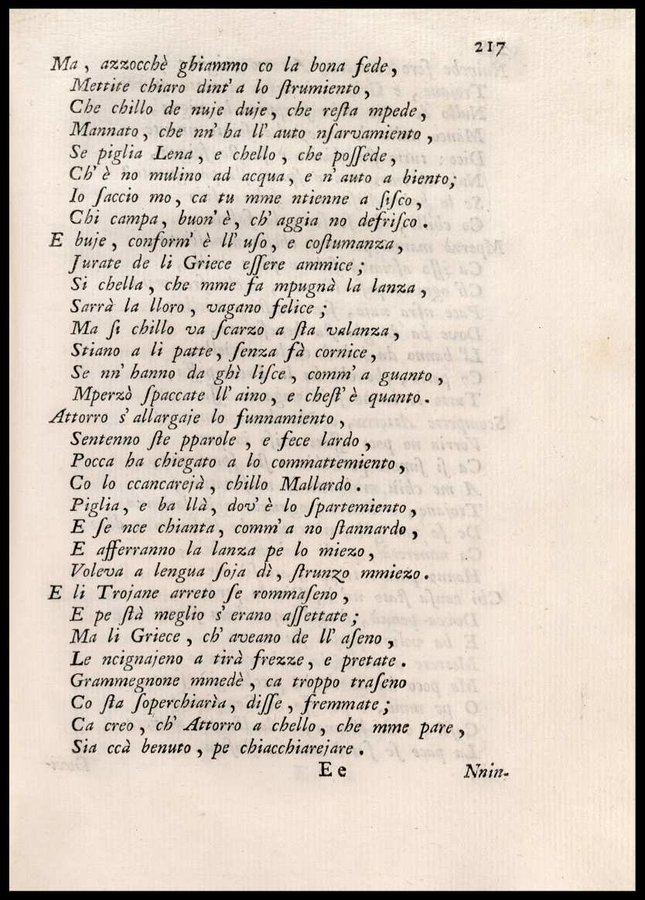 217
Ma, azzocchè ghiammo co la bona fede,
Mettite chiaro dint'a lo ſtrumiento,
Che chillo de nuje duje, che reſta mpede,
Mannato, che nn'ha ll'auto nſarvamiento,
Se piglia Lena, e chello, che poſſede,
Ch'è no mulino ad acqua, e n'auto a biento;
Io ſaccio mo, ca tu mme ntienne a ſiſco,
Chi campa, buon'è, ch'aggia no defriſco.
E buje, conform'è ll'uſo, e coſtumanza,
Jurate de li Griece eſſere ammice;
Si chella, che mme fa mpugnà la lanza,
Sarrà la lloro, vagano felice;
Ma ſi chillo va ſcarzo a ſta valanza,
Stiano a li patte, ſenza fà cornice,
Se nn'hanno da ghì liſce, comm'a guanto,
Mperzò ſpaccate ll'aino, e cheſt'è quanto.
Attorro s'allargaje lo funnamiento,
Sentenno ſte pparole, e fece lardo,
Pocca ha chiegato a lo commattemiento,
Co lo ccancarejà, chillo Mallardo.
Piglia, e ba llà, dov'è lo ſpartemiento,
E ſe nce chianta, comm'a no ſtannardo,
E afferranno la lanza pe lo miezo,
Voleva a lengua ſoja dì, ſtrunzo mmiezo.
E li Trojane arreto ſe rommaſeno,
E pe ſtà meglio s'erano aſſettate;
Ma li Griece, ch'aveano de ll'aſeno,
Le ncignajeno a tirà frezze, e pretate.
Grammegnone mmedè, ca troppo traſeno
Co ſta ſoperchiarìa, diſſe, fremmate;
Ca creo, ch'Attorro a chello, che mme pare,
Sia ccà benuto, pe chiacchiarejare.
Ee Nnin-